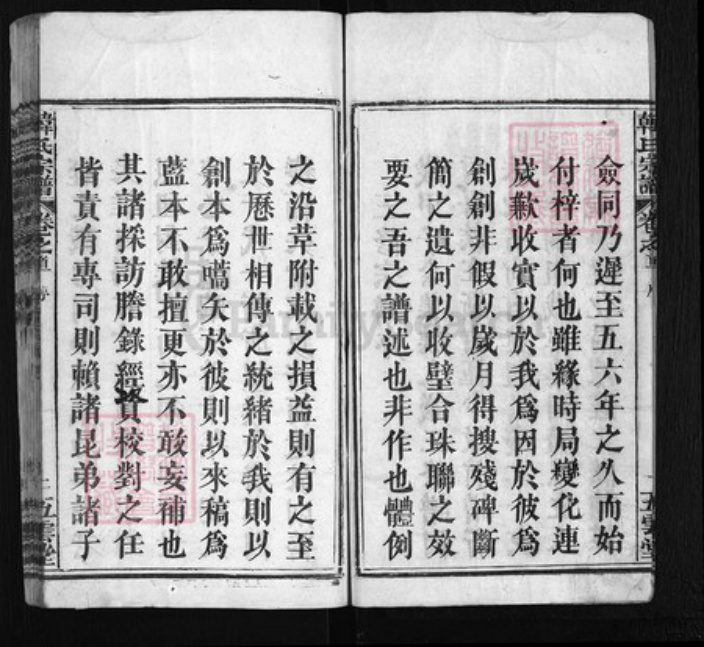 僉同乃遲至五六年之久而始
付梓者何也雖緣時局變化連
歲歉收實以於我爲因於彼爲
創創非假以歲月得搜殘碑斷
簡之遺何以收璧合珠聯之效
要之吾之譜述也非作也體例
之沿草附載之損益則有之至
於歷世相傳之統緒於我則以
創本爲嚆矢於彼則以來稿爲
藍本不敢擅更亦不敢妄補也
其諸採訪謄錄經費校對之任
皆責有專司則賴諸昆弟諸子
韓氏宗譜
卷之首
五雲堂